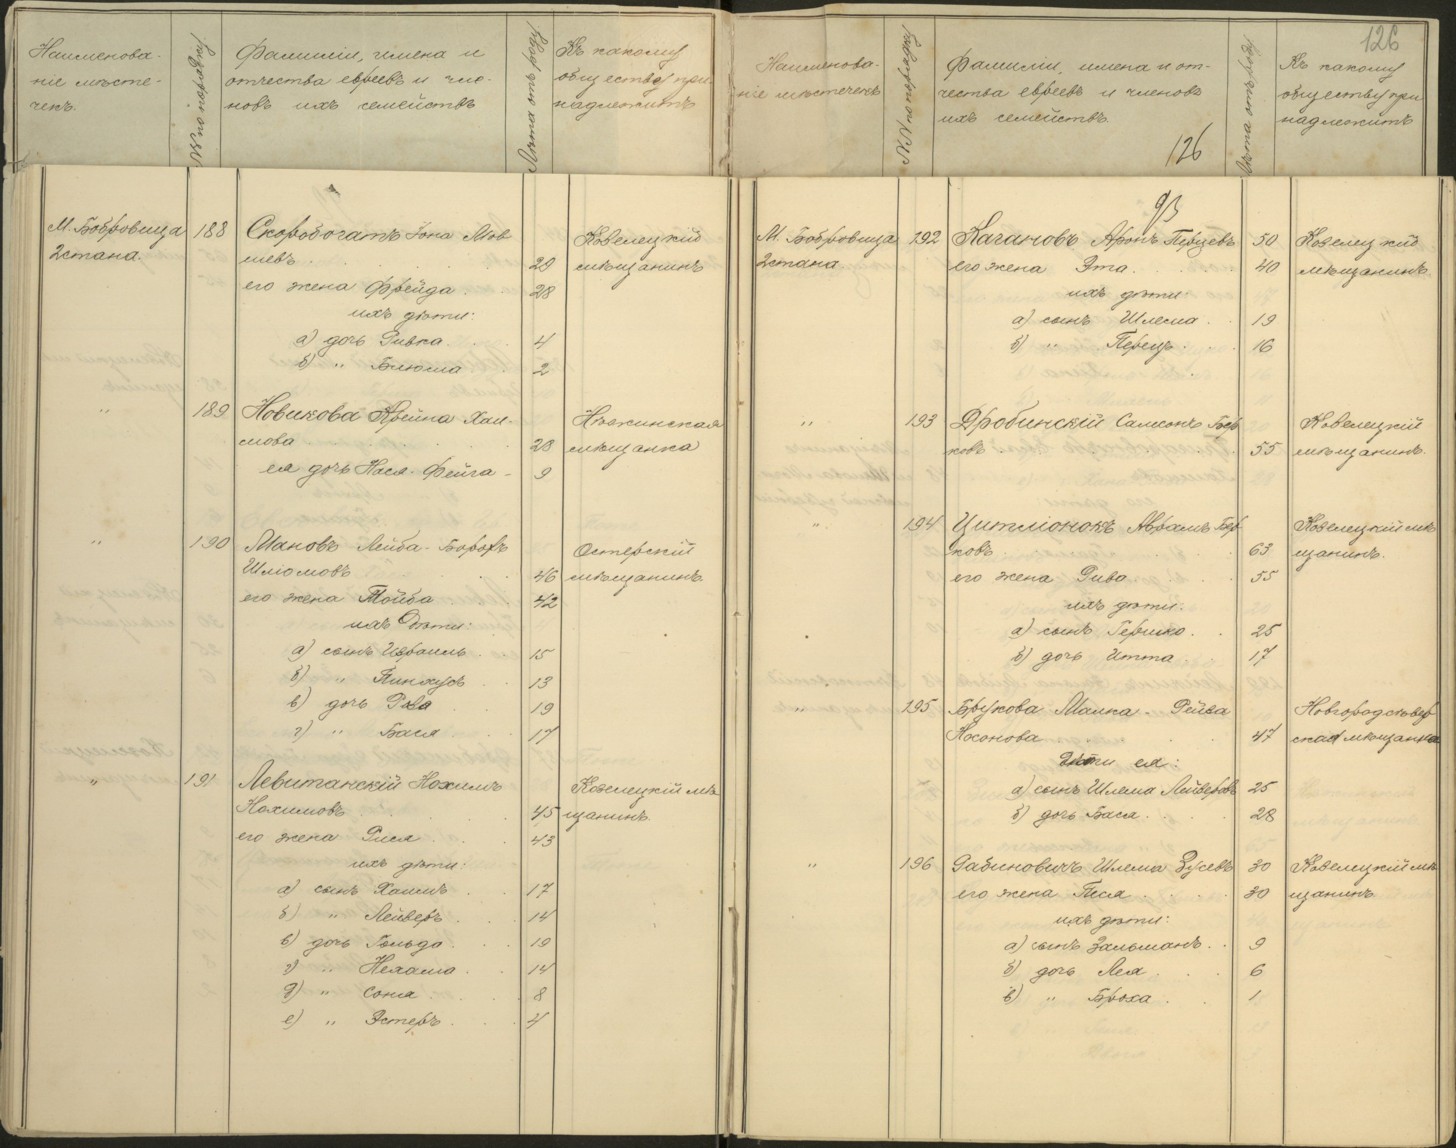 Наименова-
ніе мѣсте-
чекъ.
№№ по порядку
Фамиліи, имена и
отчества евреевъ и чле-
новъ ихъ семействъ
Лѣта отъ роду
Къ какому
обществу при
надлежитъ
М. Бобровица
2 стана.
188
Скоробогатъ Іона Мов
шевъ . . . . . 29
Козелецкій
мѣщанинъ
его жена Фрейда . . 28
ихъ дѣти:
а) дочь Ривка . . 4
б) " Блюма . . 2
"
189
Новикова Крейна Хаи-
мова . . . . . 28
Нѣжинская
мѣщанка
ея дочь Нася-Фейга - 9
"
190
Мановъ Лейба-Борохъ
Шліомовъ . . . 46
Остерскій
мѣщанинъ
его жена Тойба 42
ихъ дѣти:
а) сынъ Израиль . 15
б) " Пинхусъ . 13
в) дочь Рива . 19
г) " Бася . . 17
"
191
Левитанскій Нохимъ
Нохимовъ . . . . 45
Козелецкій мѣ
щанинъ
его жена Рися . . . 43
ихъ дѣти:
а) сынъ Хаимъ . . 17
б) " Лейверъ . . 14
в) дочь Гольда . . 19
г) " Нехама . . 14
д) " Соня . . . 8
е) " Эстеръ . . . 4
126
Наименова-
ніе мѣстечекъ
№№ по порядку
Фамиліи, имена и от-
чества евреевъ и членовъ
ихъ семействъ.
126
Лѣта отъ роду
Къ какому
обществу при
надлежитъ
93
М. Бобровица
2 стана
192
Кагановъ Аронъ Перцевъ 50
Козелецкій
мѣщанинъ.
его жена Эта . . . . 40
ихъ дѣти:
а) сынъ Шлема . . 19
б) " Перецъ . . . 16
"
193
Дробинскій Самсонъ Бер
ковъ . . . . . 55
Козелецкій
мѣщанинъ.
"
194
Цитліонокъ Абрамъ Бер
ковъ . . . . . 63
Козелецкій мѣ
щанинъ.
его жена Рива . . . 55
ихъ дѣти:
а) сынъ Гершко . . 25
б) дочь Итта . . . 17
"
195
Брукова Малка-Рейза
Нохонова . . . . 47
Новгородсѣвер
ская мѣщанка
дѣти ея:
а) сынъ Шлема Лейзеровъ 25
б) дочь Бася . . . 28
"
196
Рабиновичъ Шлема Зусевъ 30
Козелецкій мѣ
щанинъ
его жена Песя . . . . 30
ихъ дѣти:
а) сынъ Зальманъ . . 9
б) дочь Лея . . . 6
в) " Броха . . . 1